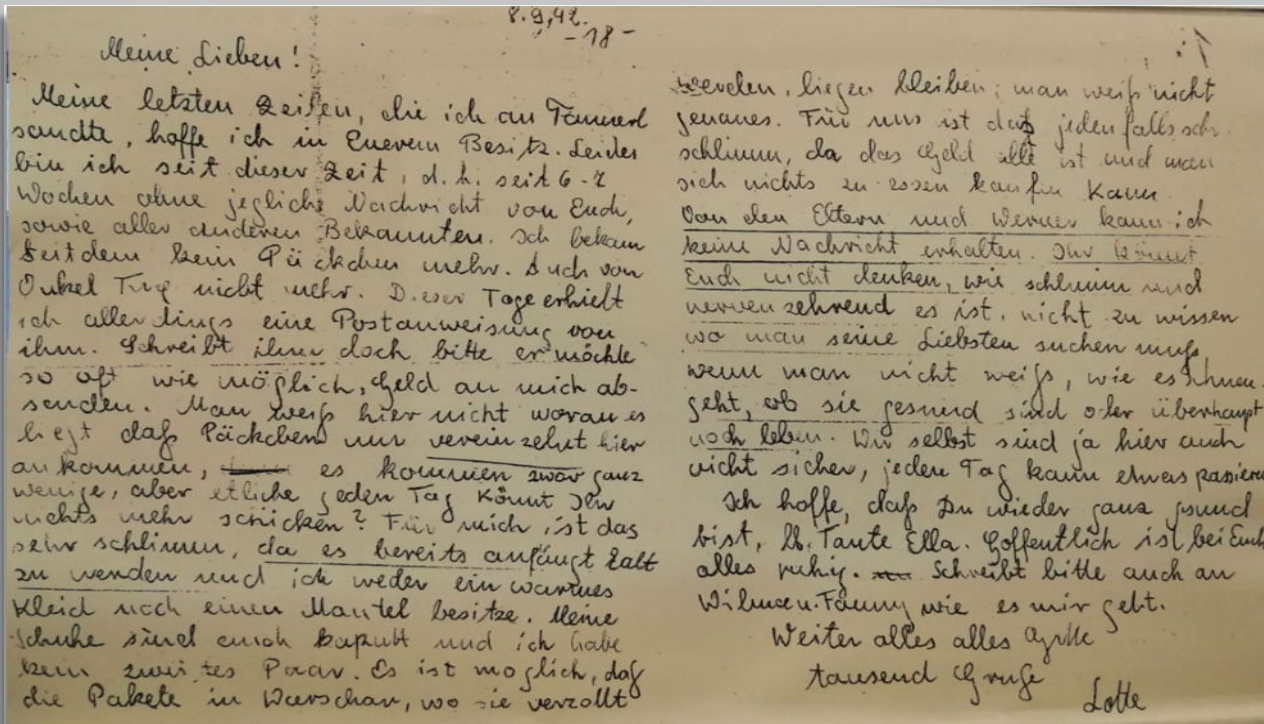 8.9.42.
- 18 -
Meine Lieben!
Meine letzten Zeilen, die ich an Tannerl
sandte, hoffe ich in Euerem Besitz. Leider
bin ich seit dieser Zeit, d.h. seit 6-7
Wochen ohne jegliche Nachricht von Euch,
sowie aller anderen Bekannten. Ich bekam
seitdem kein Päckchen mehr. Auch von
Onkel nicht mehr. Dieser Tage erhielt
ich allerdings eine Postanweisung von
ihm. Schreibt ihm doch bitte er möchte
so oft wie möglich, Geld an mich ab-
senden. Man weiß hier nicht woran es
liegt daß Päckchen nur vereinzelnt hier
ankommen, es kommen zwar ganz
wenige, aber etliche jeden Tag Könnt Ihr
nichts mehr schicken? Für mich ist das
sehr schlimm, da es bereits anfängt kalt
zu werden und ich weder ein warmes
Kleid noch einen Mantel besitze. Meine
Schuhe sind auch kaputt und ich habe
kein zweites Paar. Es ist möglich, daß
die Pakete in Warschau, wo sie verzollt
werden, liegen bleiben; man weiß nicht
genaues. Für uns ist daß jedenfalls sehr
schlimm, da das Geld alle ist und man
sich nichts zu essen kaufen kann
Von den Eltern und Werner kann ich
keine Nachricht erhalten. Ihr könnt
Euch nicht denken, wie schlimm und
nervenzehrend es ist, nicht zu wissen
wo man seine Liebsten suchen muß,
wenn man nicht weiß, wie es ihnen
geht, ob sie gesund sind oder überhaupt
noch leben. Wir selbst sind ja hier auch
nicht sicher, jeden Tag kann etwas passieren
Ich hoffe, daß Du wieder ganz gsund
bist, lb. Tante Ella. Hoffentlich ist bei Euch
alles ruhig. Schreibt bitte auch an
Wilma u. Fanny wie es mir geht.
Weiter alles alles Gute
tausend Grüße
Lotte